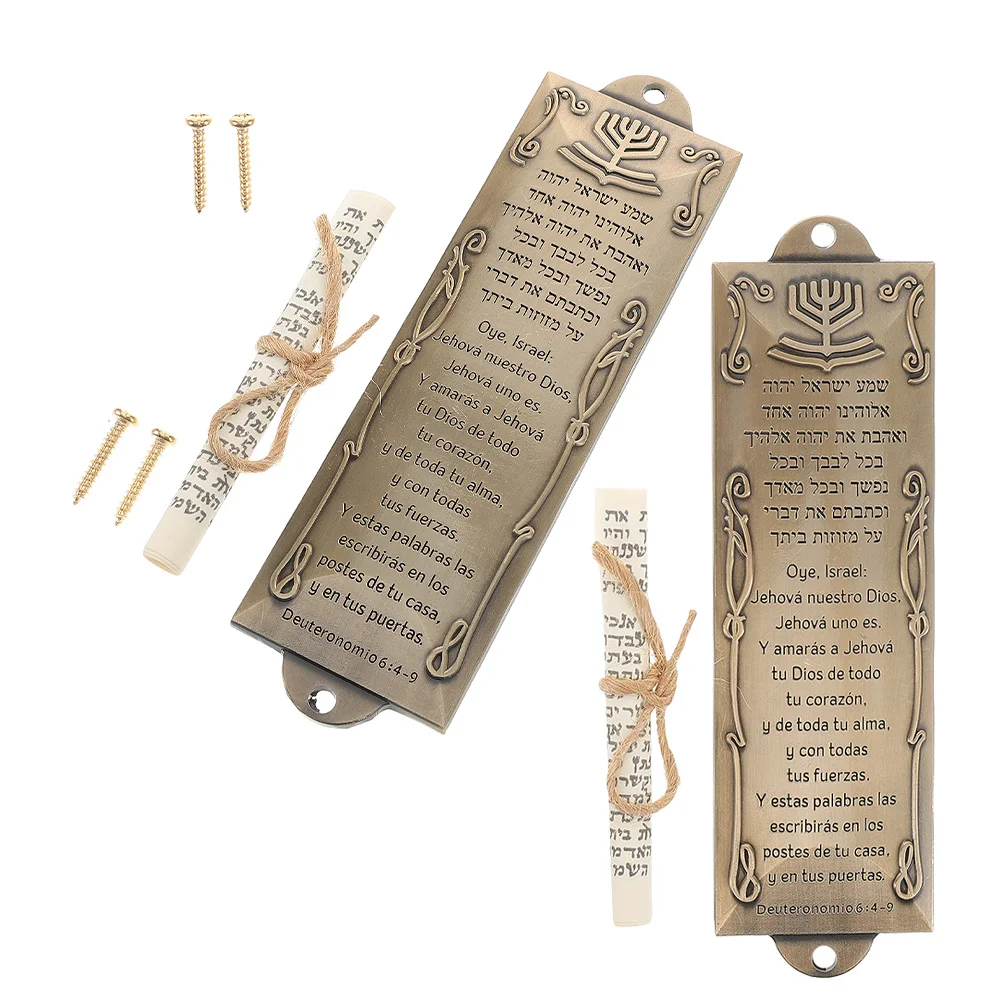 שמע ישראל יהוה
אלוהינו יהוה אחד
ואהבת את יהוה אלהיך
בכל לבבך ובכל
נפשך ובכל מאדך
וכתבתם את דברי
על מזוזות ביתך
Oye, Israel:
Jehová nuestro Dios,
Jehová uno es.
Y amarás a Jehová
tu Dios de todo
tu corazón,
y de toda tu alma,
y con todas
tus fuerzas.
Y estas palabras las
escribirás en los
postes de tu casa,
y en tus puertas.
Deuteronomio 6:4-9
שמע ישראל יהוה
אלוהינו יהוה אחד
ואהבת את יהוה אלהיך
בכל לבבך ובכל
נפשך ובכל מאדך
וכתבתם את דברי
על מזוזות ביתך
Oye, Israel:
Jehová nuestro Dios,
Jehová uno es.
Y amarás a Jehová
tu Dios de todo
tu corazón,
y de toda tu alma,
y con todas
tus fuerzas.
Y estas palabras las
escribirás en los
postes de tu casa,
y en tus puertas.
Deuteronomio 6:4-9